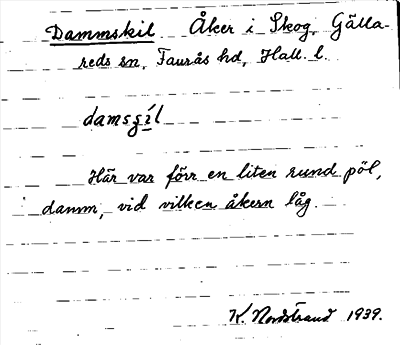 Dammskil Åker i Skog, Gälla-
reds sn, Faurås hd, Hall. l.
damsgíl
Här var förr en liten rund pöl,
damm, vid vilken åkern låg.
K. Nordstrand 1939.